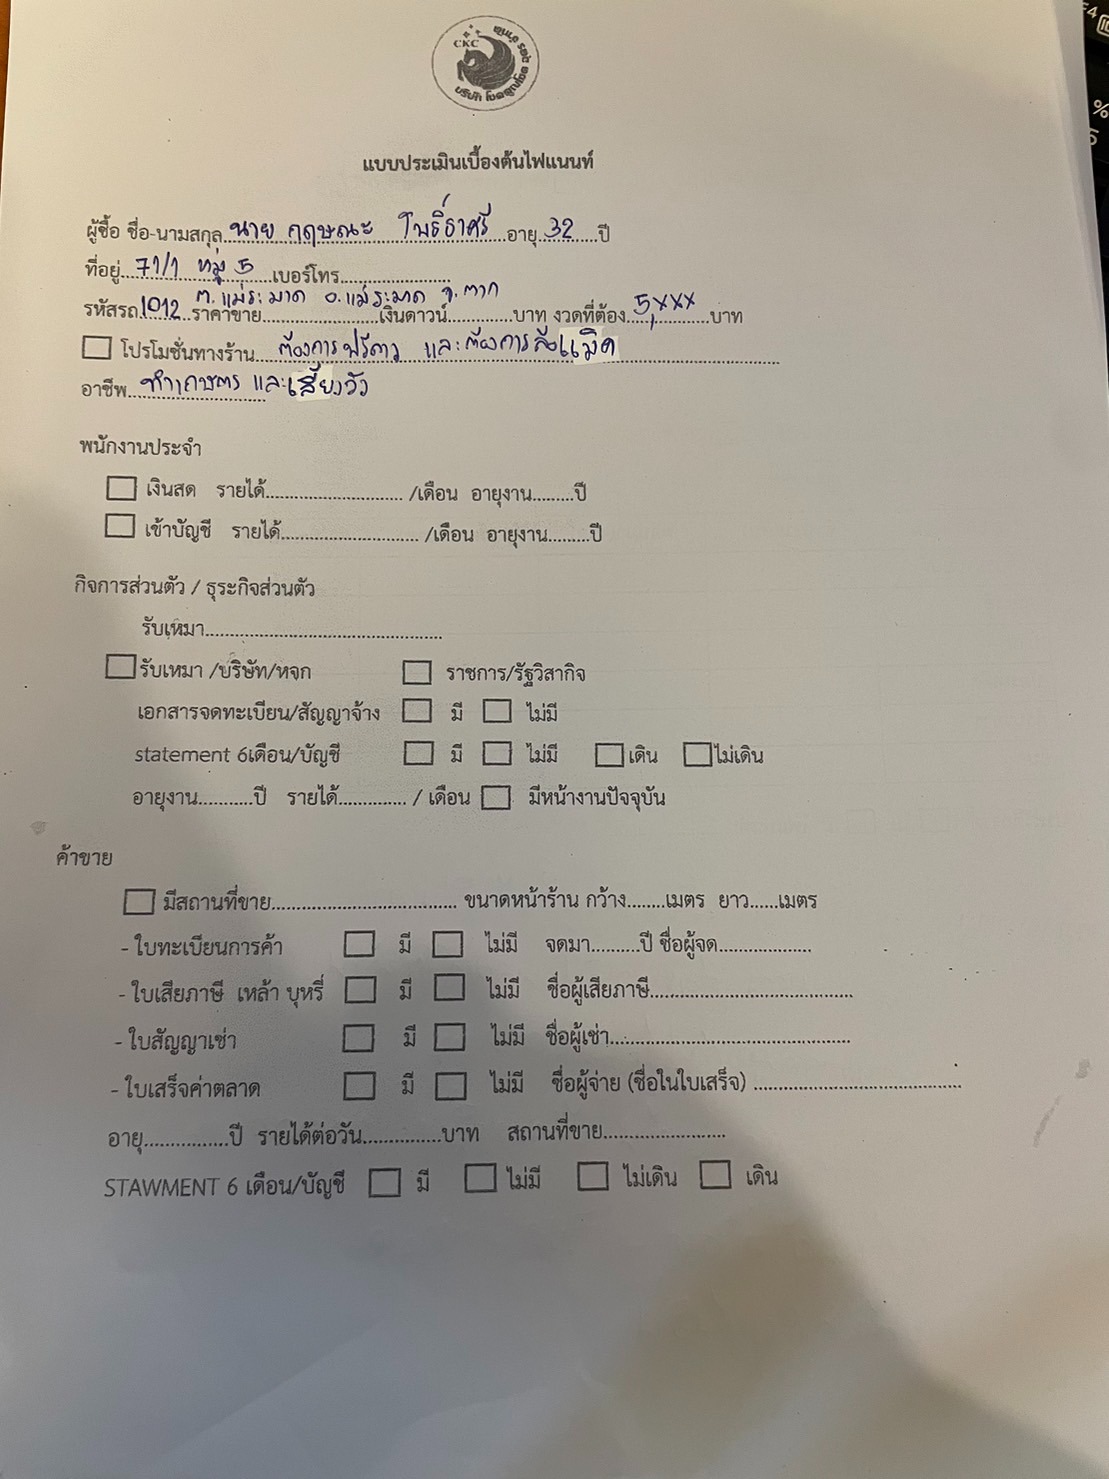 CKC
แบบประเมินเบื้องต้นไฟแนนท์
ผู้ซื้อ ชื่อ-นามสกุล นาย กฤษณะ โพธิ์ราศรี อายุ 32 ปี
ที่อยู่ 71/1 หมู่ 5 เบอร์โทร
ต.แม่ระมาด อ.แม่ระมาด จ.ตาก
รหัสรถ 1012 ราคาขาย เงินดาวน์ บาท งวดที่ต้อง 5,xxx บาท
โปรโมชั่นทางร้าน ต้องการฟรีดาว และต้องการลังแม็ค
อาชีพ ทำเกษตร และเลี้ยงวัว
พนักงานประจำ
เงินสด รายได้ /เดือน อายุงาน ปี
เข้าบัญชี รายได้ /เดือน อายุงาน ปี
กิจการส่วนตัว / ธุระกิจส่วนตัว
รับเหมา
รับเหมา /บริษัท/หจก ราชการ/รัฐวิสากิจ
เอกสารจดทะเบียน/สัญญาจ้าง มี ไม่มี
statement 6เดือน/บัญชี มี ไม่มี เดิน ไม่เดิน
อายุงาน ปี รายได้ / เดือน มีหน้างานปัจจุบัน
ค้าขาย
มีสถานที่ขาย ขนาดหน้าร้าน กว้าง เมตร ยาว เมตร
- ใบทะเบียนการค้า มี ไม่มี จดมา ปี ชื่อผู้จด
- ใบเสียภาษี เหล้า บุหรี่ มี ไม่มี ชื่อผู้เสียภาษี
- ใบสัญญาเช่า มี ไม่มี ชื่อผู้เช่า
- ใบเสร็จค่าตลาด มี ไม่มี ชื่อผู้จ่าย (ชื่อในใบเสร็จ)
อายุ ปี รายได้ต่อวัน บาท สถานที่ขาย
STAWMENT 6 เดือน/บัญชี มี ไม่มี ไม่เดิน เดิน